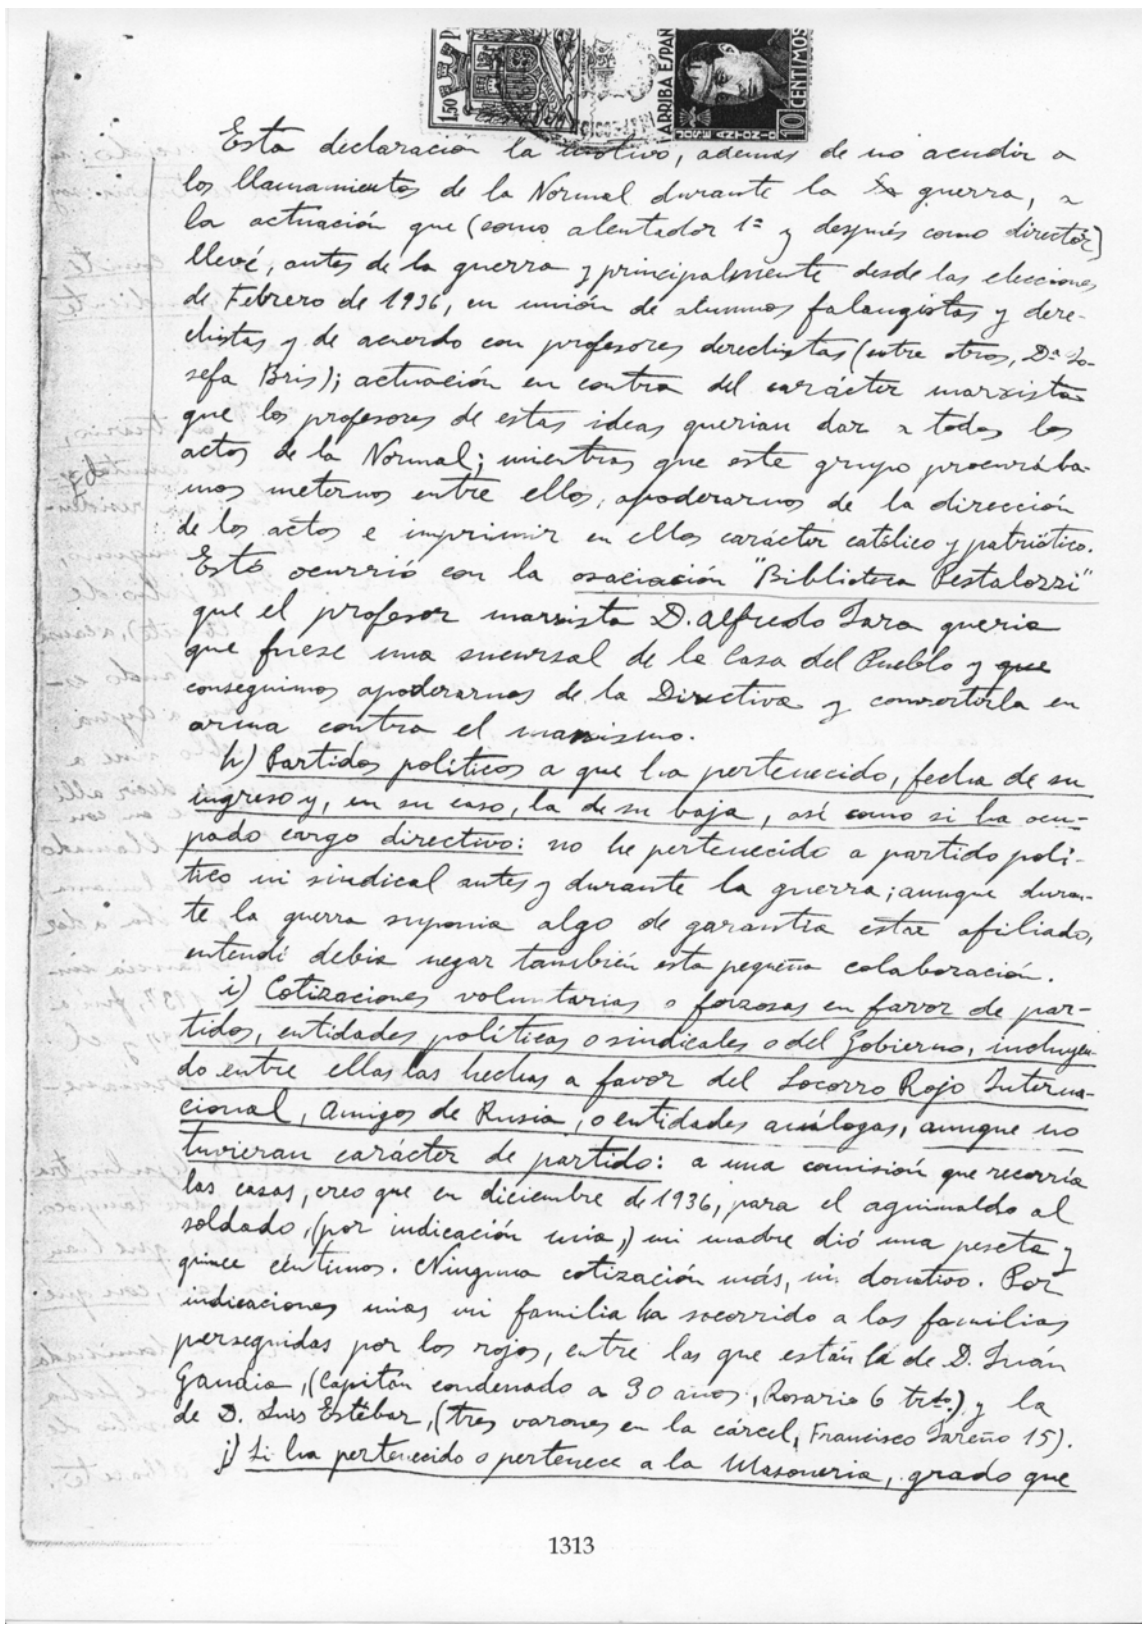 1'50 P
ARRIBA ESPAÑ
JOSE ANTONIO
10 CENTIMOS
Esta declaracion la motivo, ademas de no acudir a
los llamamientos de la Normal durante la guerra, a
la actuación que (como alentador 1º y después como director)
llevé, antes de la guerra y principalmente desde las elecciones
de Febrero de 1936, en unión de alumnos falangistas y dere-
chistas y de acuerdo con profesores derechistas (entre otros, Dª Jo-
sefa Bris); actuación en contra del carácter marxista
que los profesores de estas ideas querian dar a todos los
actos de la Normal; mientras que este grupo procurába-
mos meternos entre ellos, apoderarnos de la dirección
de los actos e imprimir en ellos carácter católico y patriótico.
Esto ocurrió con la asociación "Biblioteca Pestalozzi"
que el profesor marxista D. Alfredo Jara queria
que fuese una sucursal de la Casa del Pueblo y que
conseguimos apoderarnos de la Directiva y convertirla en
arma contra el marxismo.
h) Partidos políticos a que ha pertenecido, fecha de su
ingreso y, en su caso, la de su baja, así como si ha ocu-
pado cargo directivo: no he pertenecido a partido polí-
tico ni sindical antes y durante la guerra; aunque duran-
te la guerra suponia algo de garantia estar afiliado,
entendí debia negar también esta pequeña colaboración.
i) Cotizaciones voluntarias o forzosas en favor de par-
tidos, entidades políticas o sindicales o del Gobierno, incluyen-
do entre ellas las hechas a favor del Socorro Rojo Interna-
cional, Amigos de Rusia, o entidades análogas, aunque no
tuvieran carácter de partido: a una comisión que recorría
las casas, creo que en diciembre de 1936, para el aguinaldo al
soldado, (por indicación mia,) mi madre dió una peseta y
quince céntimos. Ninguna cotización más, ni donativo. Por
indicaciones mias mi familia ha socorrido a las familias
perseguidas por los rojos, entre las que están la de D. Juán
Gandia, (Capitán condenado a 30 años, Rosario 6 trdo.) y la
de D. Luis Estébar, (tres varones en la cárcel, Francisco Jareño 15).
j) Si ha pertenecido o pertenece a la Masoneria, grado que
1313